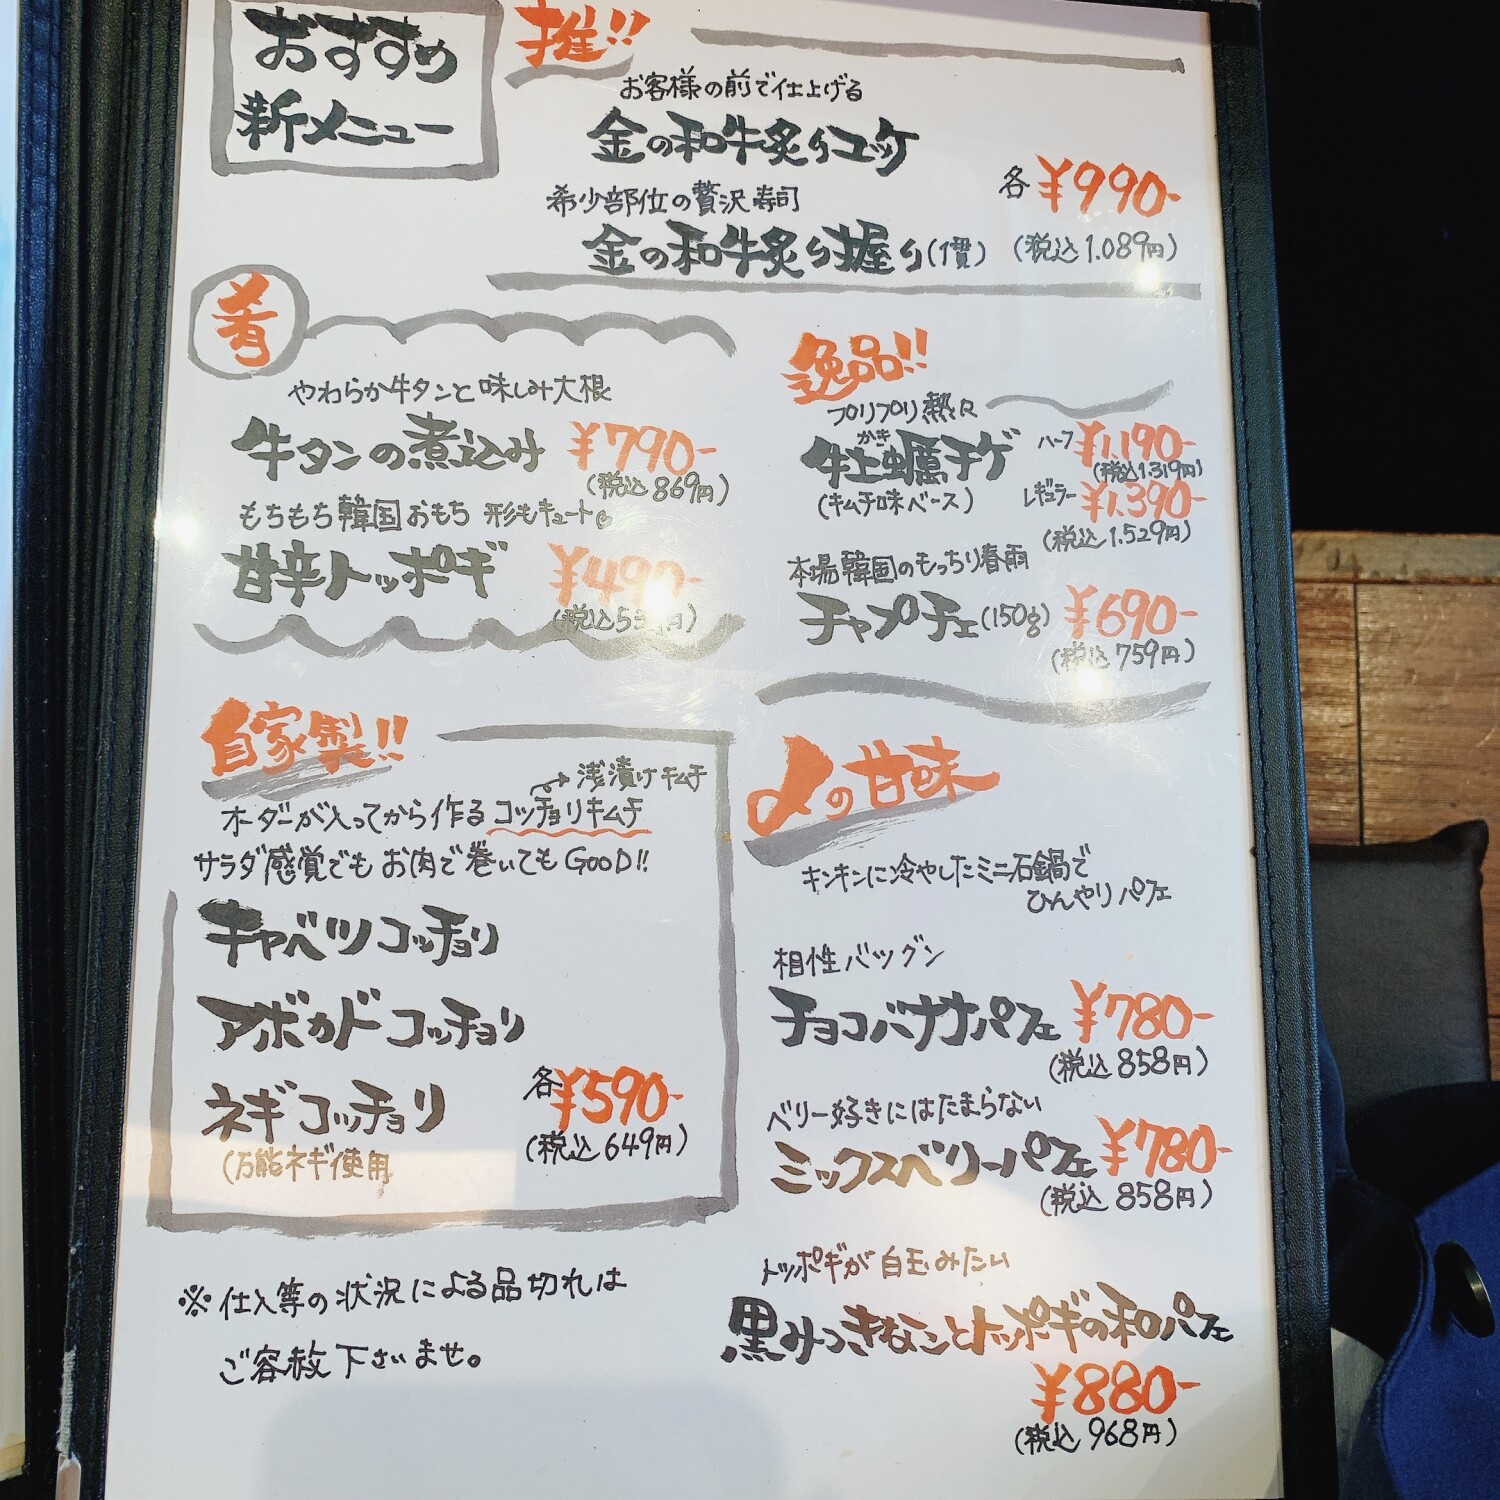 おすすめ
新メニュー
推!!
お客様の前で仕上げる
金の和牛炙りユッケ
希少部位の贅沢寿司
金の和牛炙り握り(1貫)
各¥990-
(税込1.089円)
肴
やわらか牛タンと味しみ大根
牛タンの煮込み ¥790-
(税込869円)
もちもち韓国おもち 形もキュート
甘辛トッポギ ¥490-
(税込539円)
逸品!!
プリプリ熱々
かき
牡蠣チゲ ハーフ ¥1.190-
(税込1.319円)
(キムチ味ベース) レギュラー ¥1.390-
(税込1.529円)
本場韓国のもっちり春雨
チャプチェ(150g) ¥690-
(税込759円)
自家製!!
浅漬けキムチ
オーダーが入ってから作るコッチョリキムチ
サラダ感覚でもお肉で巻いてもGOOD!!
キャベツコッチョリ
アボカドコッチョリ
ネギコッチョリ
(万能ネギ使用
各¥590-
(税込649円)
〆の甘味
キンキンに冷やしたミニ石鍋で
ひんやりパフェ
相性バツグン
チョコバナナパフェ ¥780-
(税込858円)
ベリー好きにはたまらない
ミックスベリーパフェ ¥780-
(税込858円)
トッポギが白玉みたい
黒みつきなことトッポギの和パフェ
¥880-
(税込968円)
※仕入等の状況による品切れは
ご容赦下さいませ。